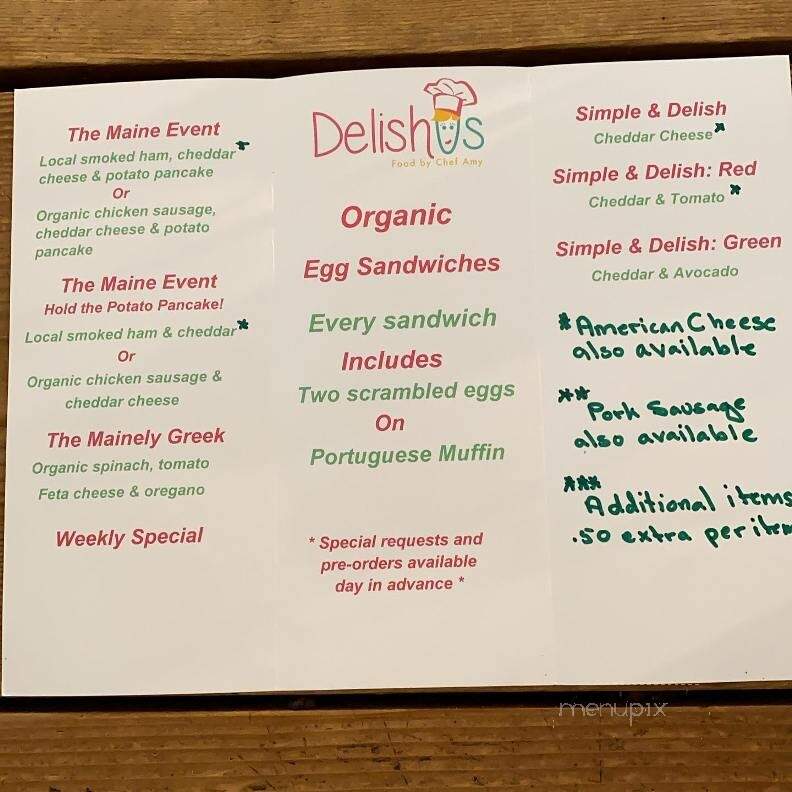 The Maine Event
Local smoked ham, cheddar*
cheese & potato pancake
Or
Organic chicken sausage,
cheddar cheese & potato
pancake
The Maine Event
Hold the Potato Pancake!
Local smoked ham & cheddar*
Or
Organic chicken sausage &
cheddar cheese
The Mainely Greek
Organic spinach, tomato
Feta cheese & oregano
Weekly Special
Delishus
Food by Chef Amy
Organic
Egg Sandwiches
Every sandwich
Includes
Two scrambled eggs
On
Portuguese Muffin
* Special requests and
pre-orders available
day in advance *
Simple & Delish
Cheddar Cheese*
Simple & Delish: Red
Cheddar & Tomato *
Simple & Delish: Green
Cheddar & Avocado
* American Cheese
also available
**
Pork Sausage
also available
***
Additional items
.50 extra per item
menupix